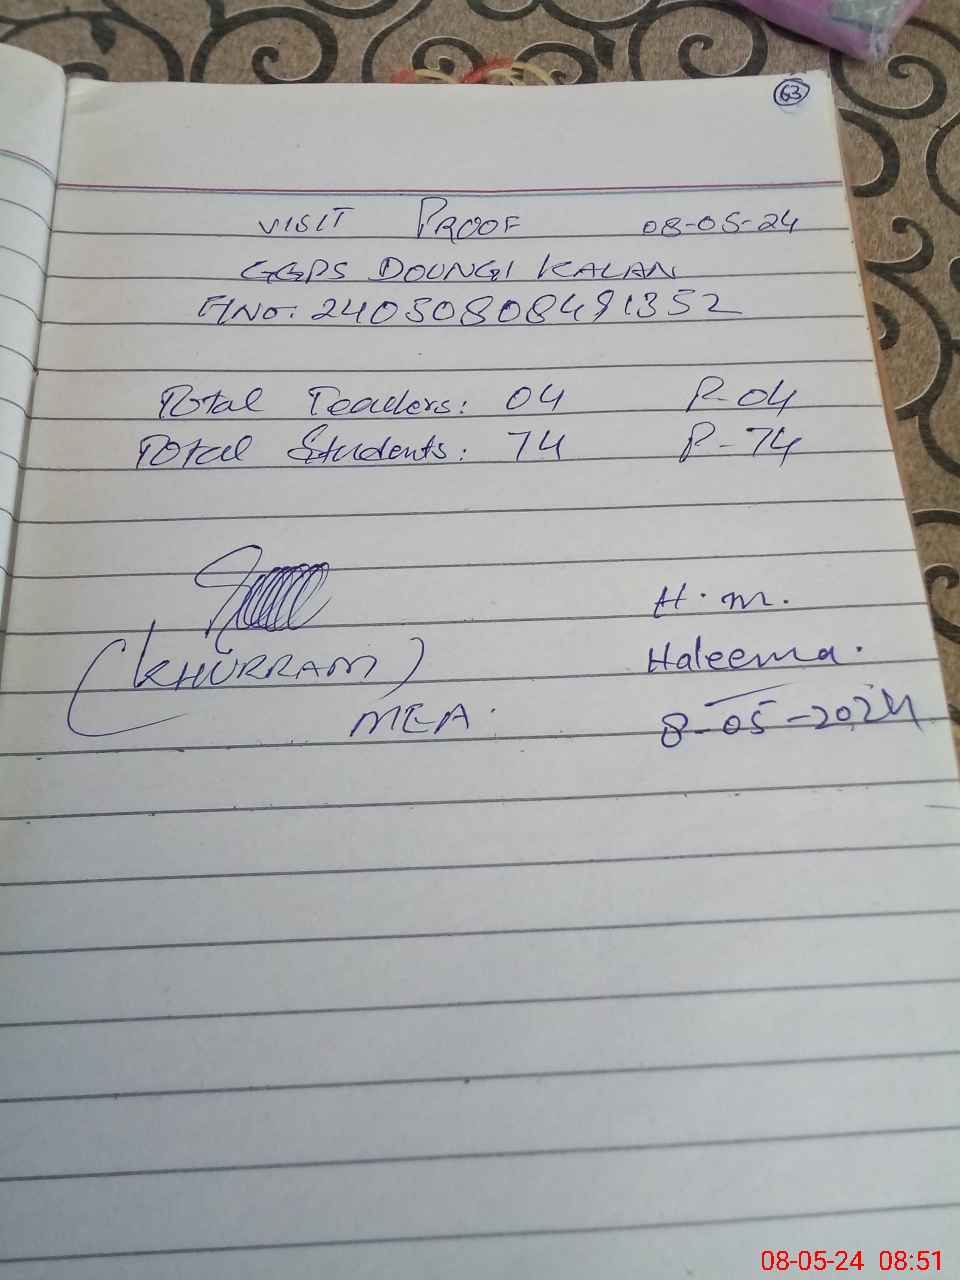 63
VISIT PROOF 08-05-24
GGPS DOUNGI KALAN
F/No: 24050808491352
Total Teachers: 04 P-04
Total Students: 74 P-74
H.m.
(KHURRAM) Haleema.
MEA. 8-05-2024
08-05-24 08:51